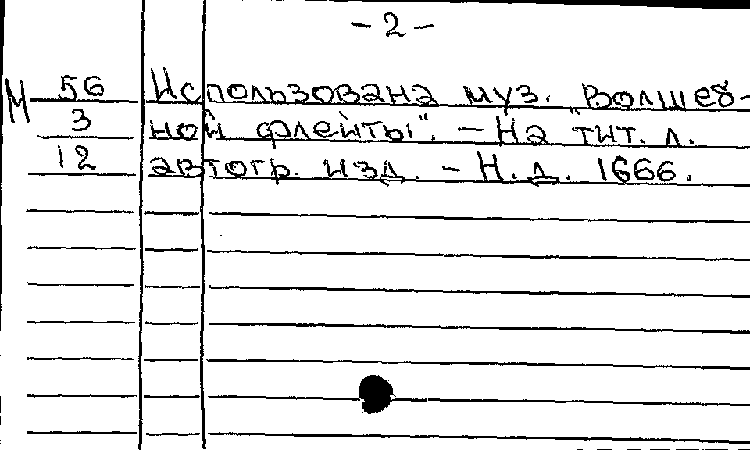 - 2 -
М 56 Использована муз. "Волшеб-
3 ной флейты". - На тит. л.
12 автогр. изд. - Н. д. 1666.